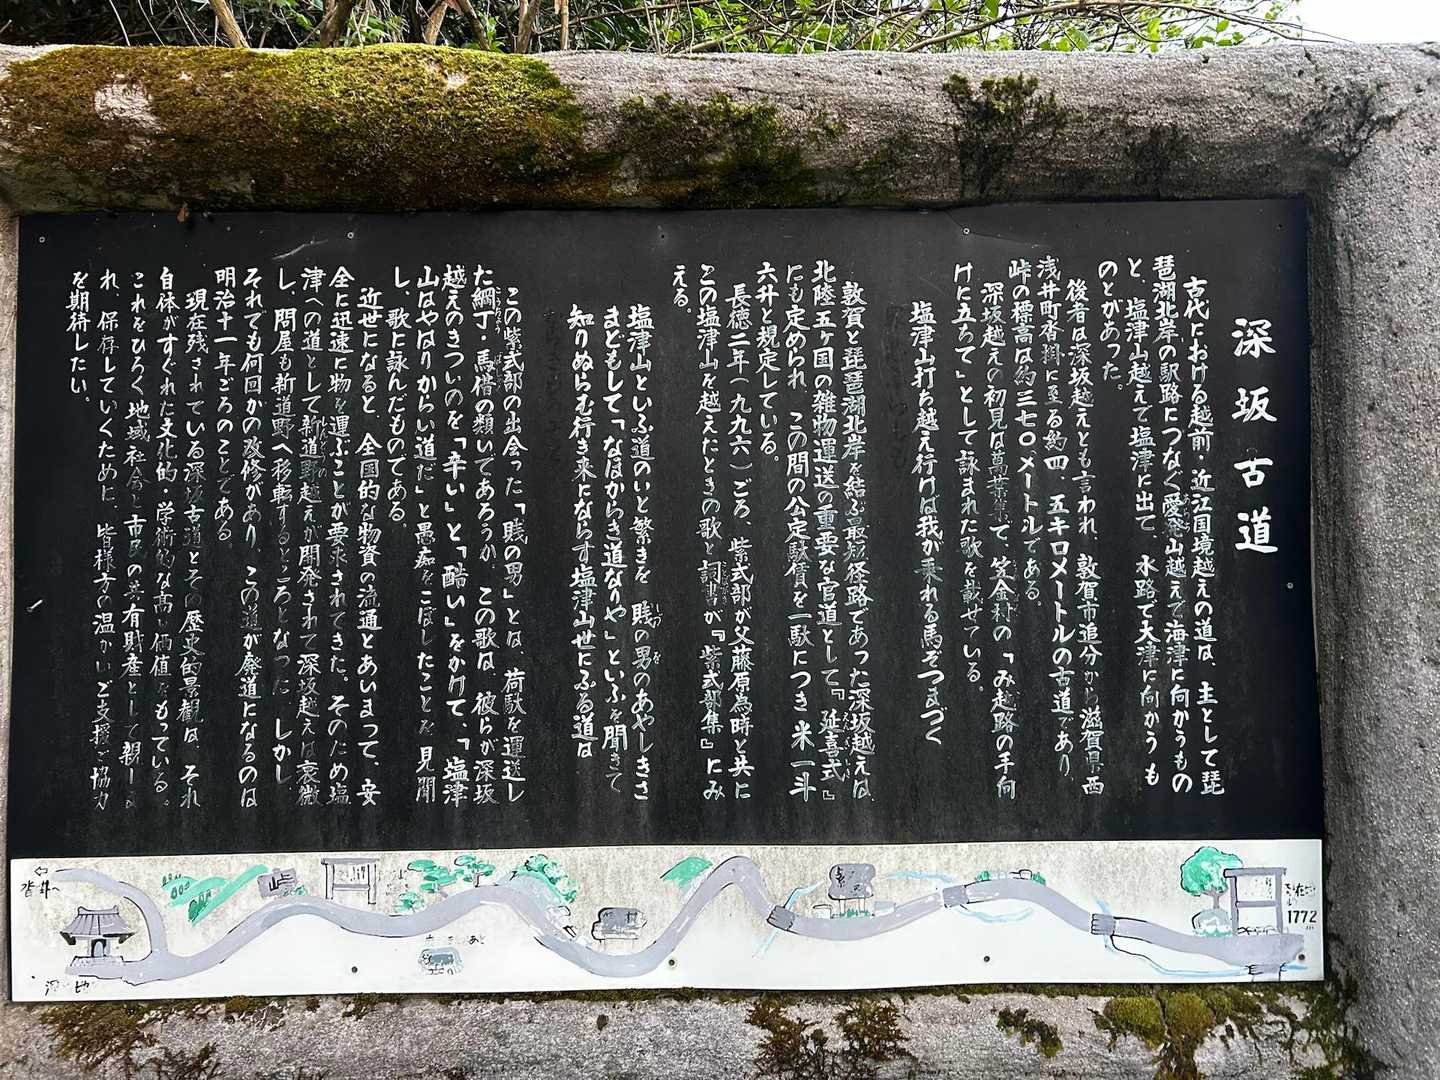 深坂古道
古代における越前・近江国境越えの道は、主として琵
琶湖北岸の駅路につなぐ愛発山越えで海津に向かうもの
と、塩津山越えて塩津に出て、水路で大津に向かうも
のとがあった。
後者は深坂越えとも言われ、敦賀市追分から滋賀県西
浅井町沓掛に至る約四、五キロメートルの古道であり、
峠の標高は約三七〇メートルである。
深坂越えの初見は萬葉集で、笠金村の「み越路の手向
けに立ちて」として詠まれた歌を載せている。
塩津山打ち越え行けば我が乗れる馬そつまづく
敦賀と琵琶湖北岸を結ぶ最短径路であった深坂越えは、
北陸五ヶ国の雑物運送の重要な官道として『延喜式』
にも定められ、この間の公定駄賃を一駄につき米一斗
六升と規定している。
長徳二年(九九六)ごろ、紫式部が父藤原為時と共に
この塩津山を越えたときの歌と詞書が『紫式部集』にみ
える。
塩津山といふ道のいと繁きを賎の男のあやしきさ
まどもして「なほからき道なりや」といふを聞きて
知りぬらむ行き来にならす塩津山世にふる道は
この紫式部の出会った「賎の男」とは、荷駄を運送し
た綱丁・馬借の類いであろうか、この歌は、彼らが深坂
越えのきついのを「辛い」と「酷い」をかけて、「塩津
山はやはりからい道だ」と愚痴をこぼしたことを見聞
し、歌に詠んだものである。
近世になると、全国的な物資の流通とあいまって、安
全に迅速に物を運ぶことが要求されてきた。そのため塩
津への道として新道野越えが開発されて深坂越えは衰微
し、問屋も新道野へ移転するところとなった。しかし、
それでも何回かの改修があり、この道が廃道になるのは
明治十一年ごろのことである。
現在残されている深坂古道とその歴史的景観は、それ
自体がすぐれた文化的・学術的な高い価値をもっている。
これをひろく地域社会と市民の共有財産として親しま
れ、保存していくために、皆様方の温かいご支援ご協力
を期待したい。
沓掛へ
峠
1772